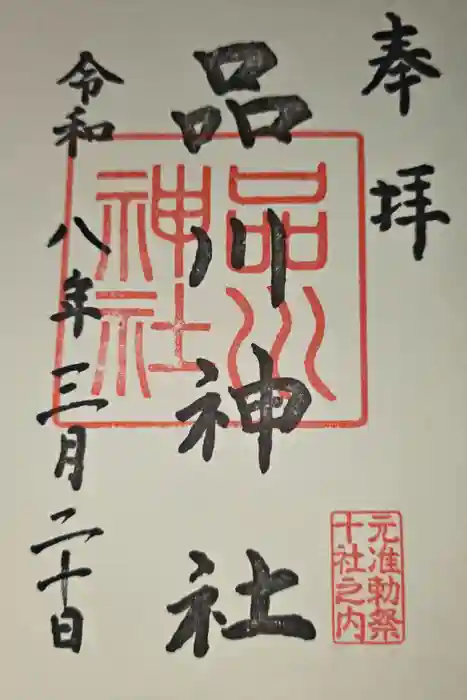 奉拝
品川神社
品川
神社
令和八年三月二十日
元准勅祭
十社之内